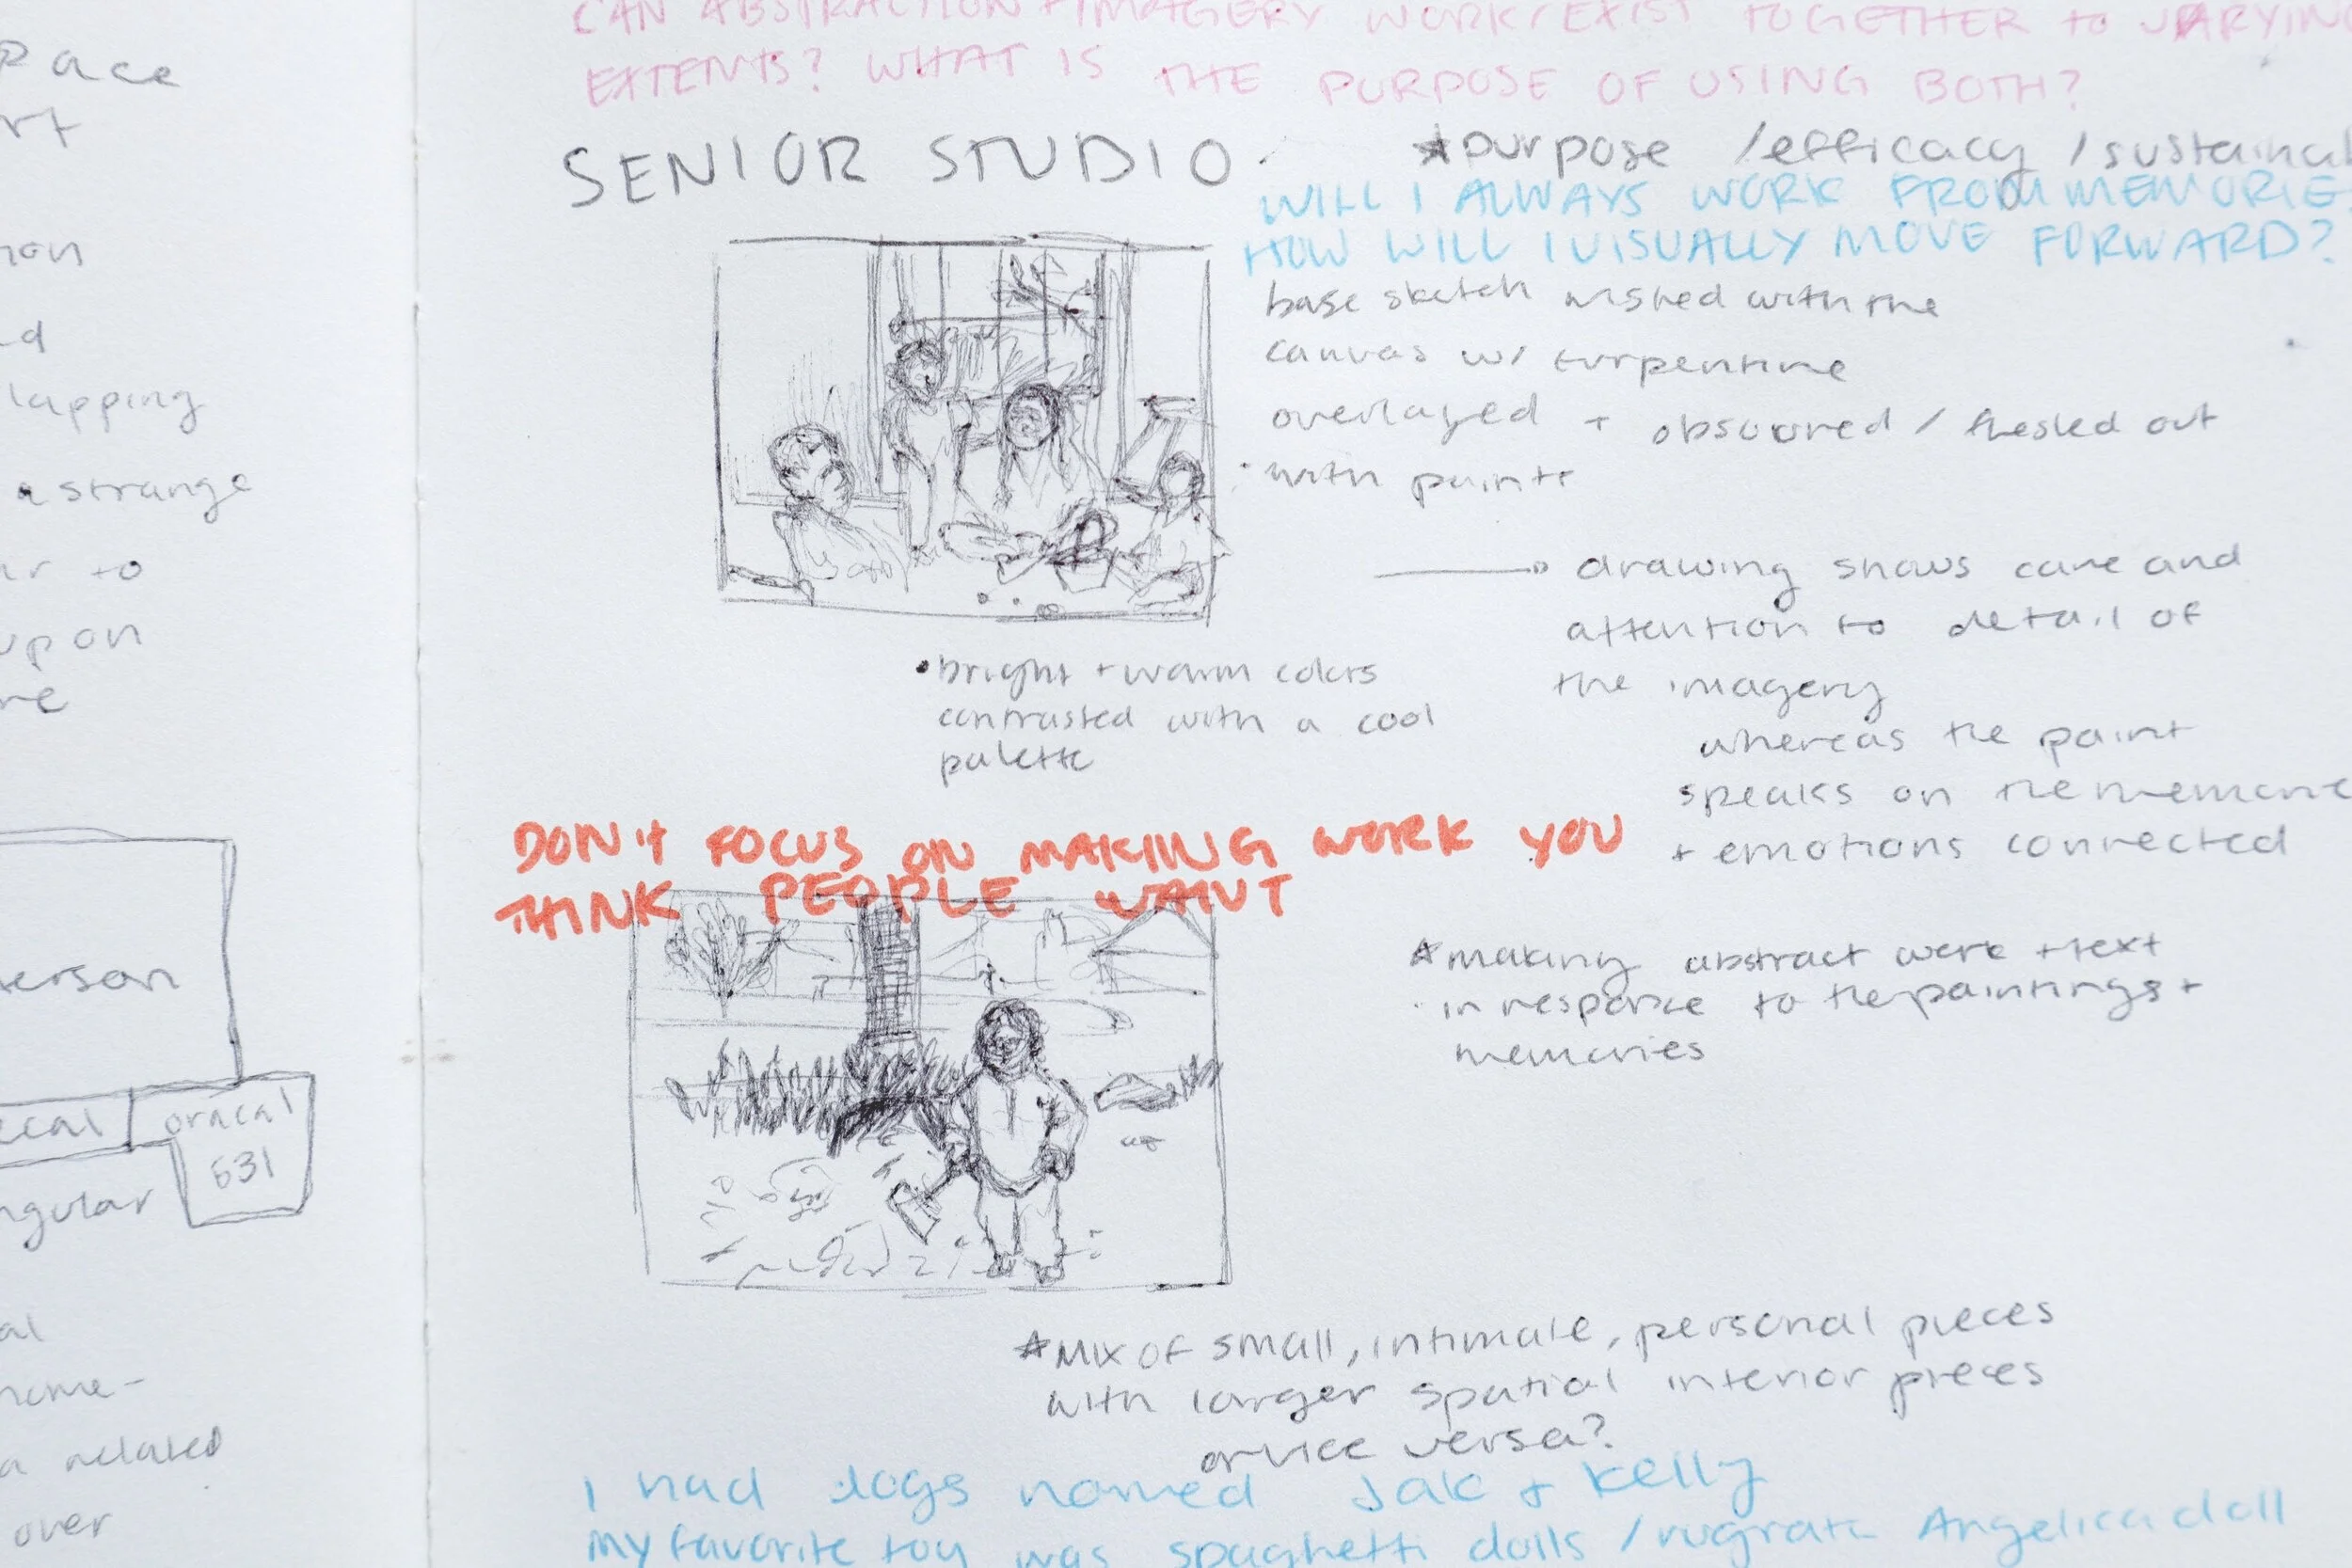 pace
rt
on
d
lapping
a strange
r to
upon
re
erson
ecal
oracal
631
ngular
al
home-
a related
over
CAN ABSTRACTION + IMAGERY WORK/EXIST TOGETHER TO VARYING
EXTENTS? WHAT IS THE PURPOSE OF USING BOTH?
SENIOR STUDIO
*purpose /efficacy /sustainab
WILL I ALWAYS WORK FROM MEMORIE
HOW WILL I VISUALLY MOVE FORWARD?
base sketch washed with the
canvas w/ turpentine
overlayed + obscured / fleshed out
with paint
→ drawing shows care and
attention to detail of
the imagery
whereas the paint
speaks on the memorie
+ emotions connected
•bright + warm colors
contrasted with a cool
palette
DON't FOCUS ON MAKING WORK YOU
THINK PEOPLE WANT
*making abstract work + text
in response to the paintings +
memories
*MIX OF small, intimate, personal pieces
with larger spatial interior pieces
or vice versa?
I had dogs named Jak + Kelly
My favorite toy was spaghetti dolls /rugrats Angelica doll